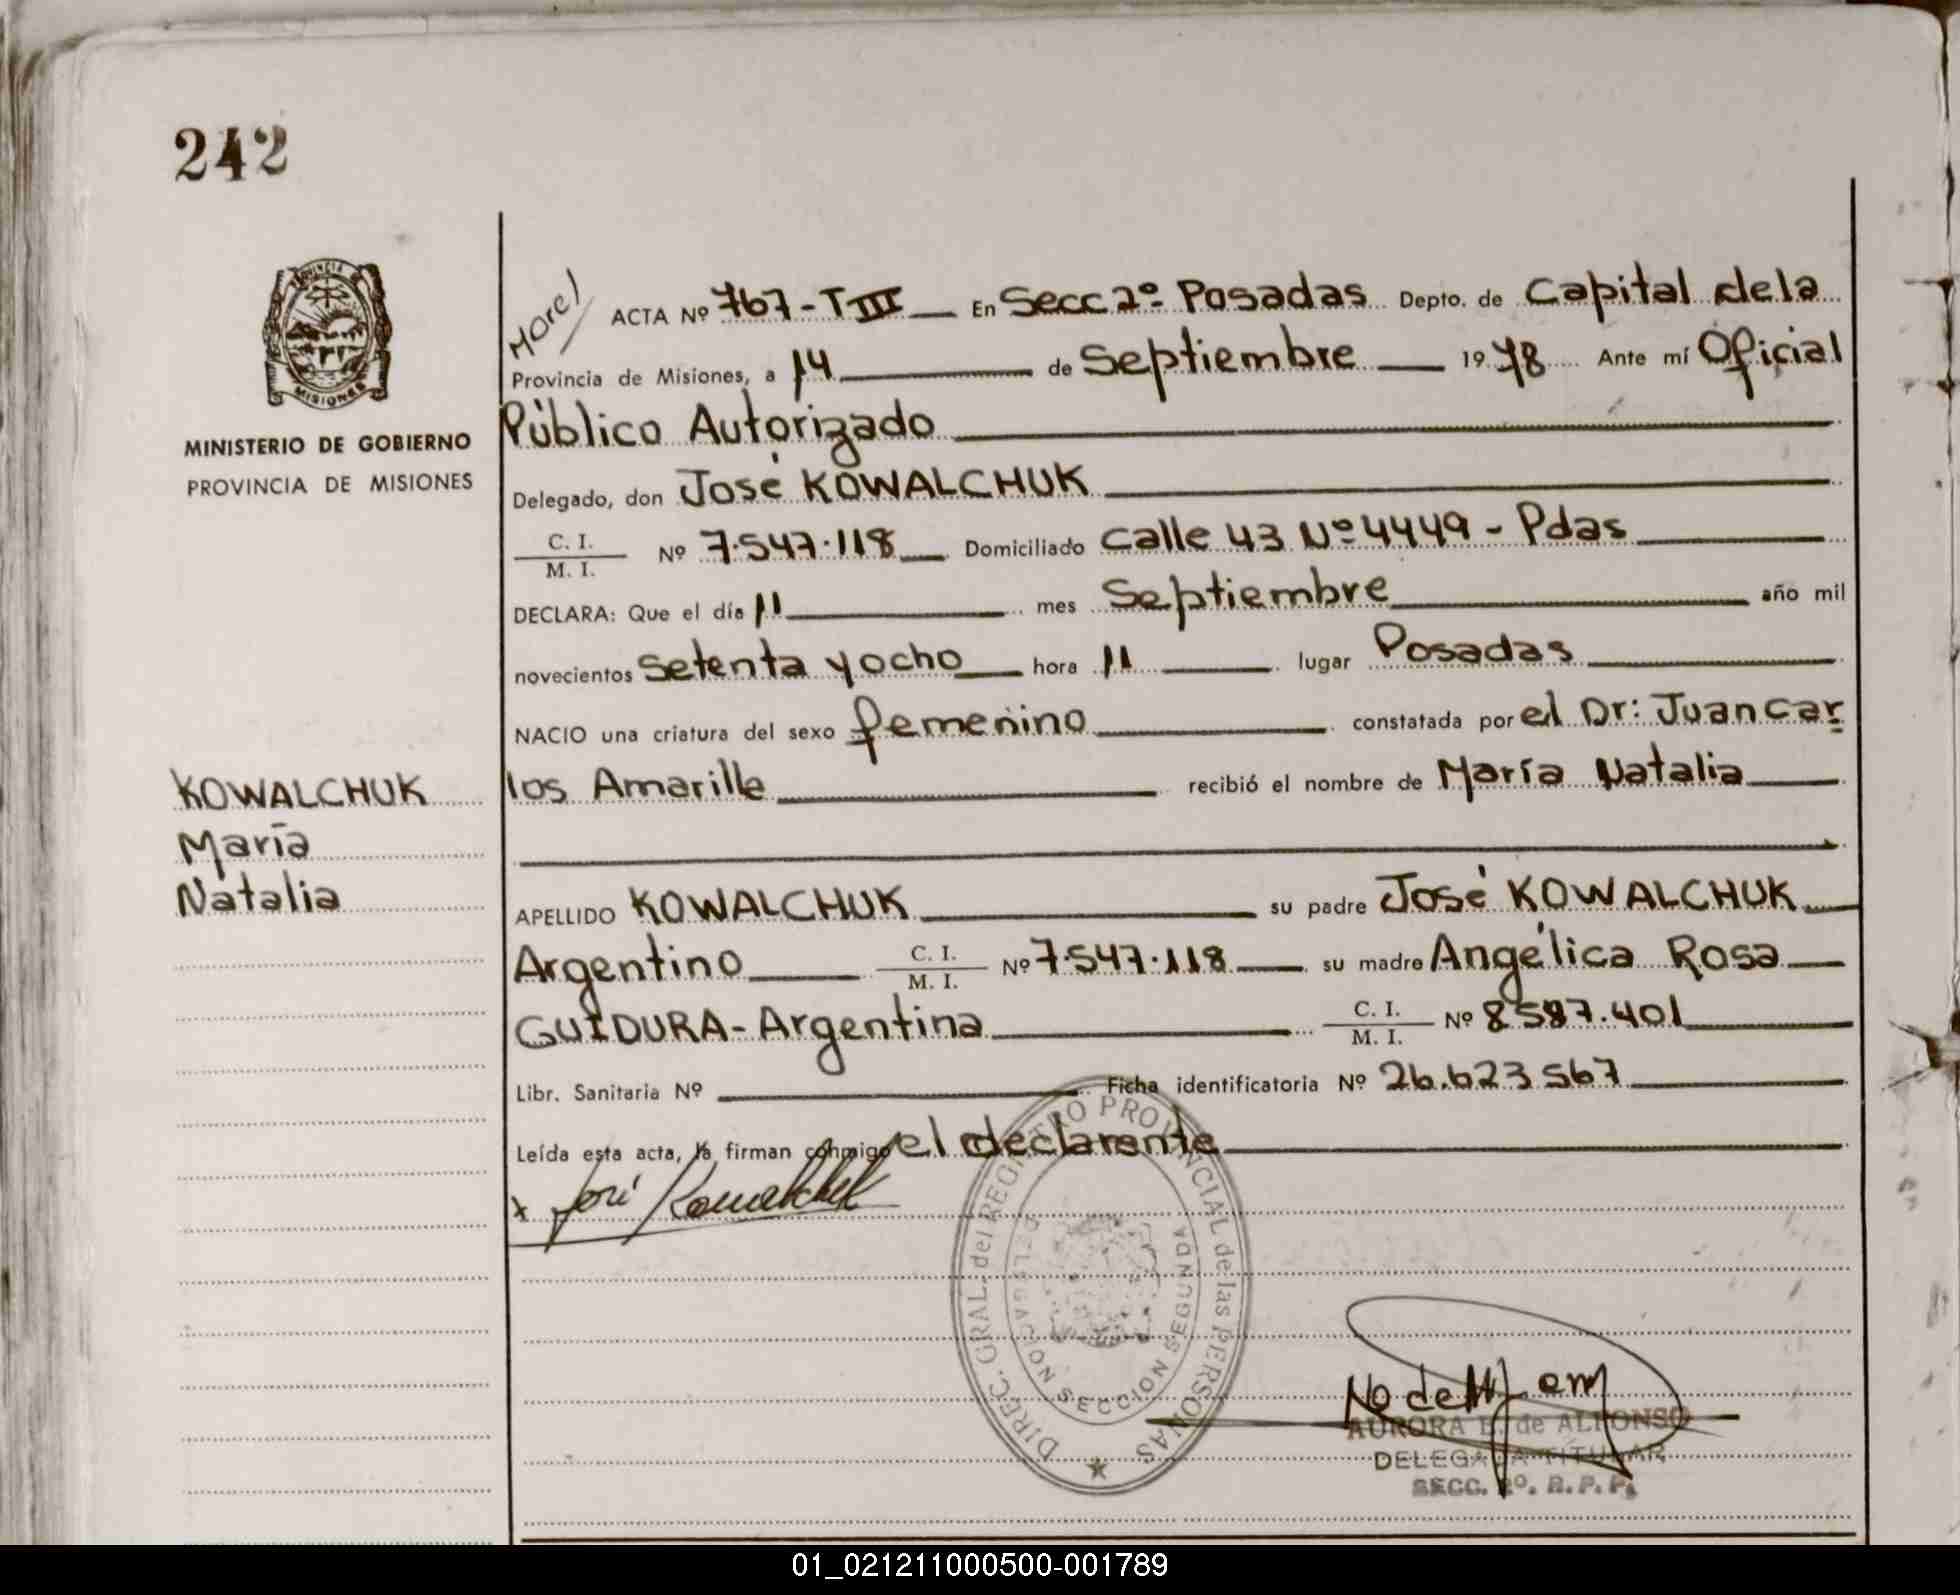 242
PROVINCIA DE
MISIONES
MINISTERIO DE GOBIERNO
PROVINCIA DE MISIONES
KOWALCHUK
María
Natalia
Morel
ACTA Nº 767-TIII En Secc 2º Posadas Depto. de Capital de la
Provincia de Misiones, a 14 de Septiembre 1978 Ante mí Oficial
Público Autorizado
Delegado, don José KOWALCHUK
C. I. / M. I. Nº 7.547.118 Domiciliado Calle 43 Nº 4449 - Pdas
DECLARA: Que el día 11 mes Septiembre año mil
novecientos Setenta y ocho hora 11 lugar Posadas
NACIO una criatura del sexo femenino constatada por el Dr: Juan Car
los Amarille recibió el nombre de María Natalia
APELLIDO KOWALCHUK su padre José KOWALCHUK
Argentino C. I. / M. I. Nº 7.547.118 su madre Angélica Rosa
GUIDURA - Argentina C. I. / M. I. Nº 8587.401
Libr. Sanitaria Nº Ficha identificatoria Nº 26.623.567
Leída esta acta, la firman conmigo el declarante
x José Kowalchuk
DIREC. GRAL. del REGISTRO PROVINCIAL de las PERSONAS
DELEGACION SECCION SEGUNDA
AURORA E. de ALFONSO
DELEGADA TITULAR
SECC. 2º. R. P. P.
01_021211000500-001789